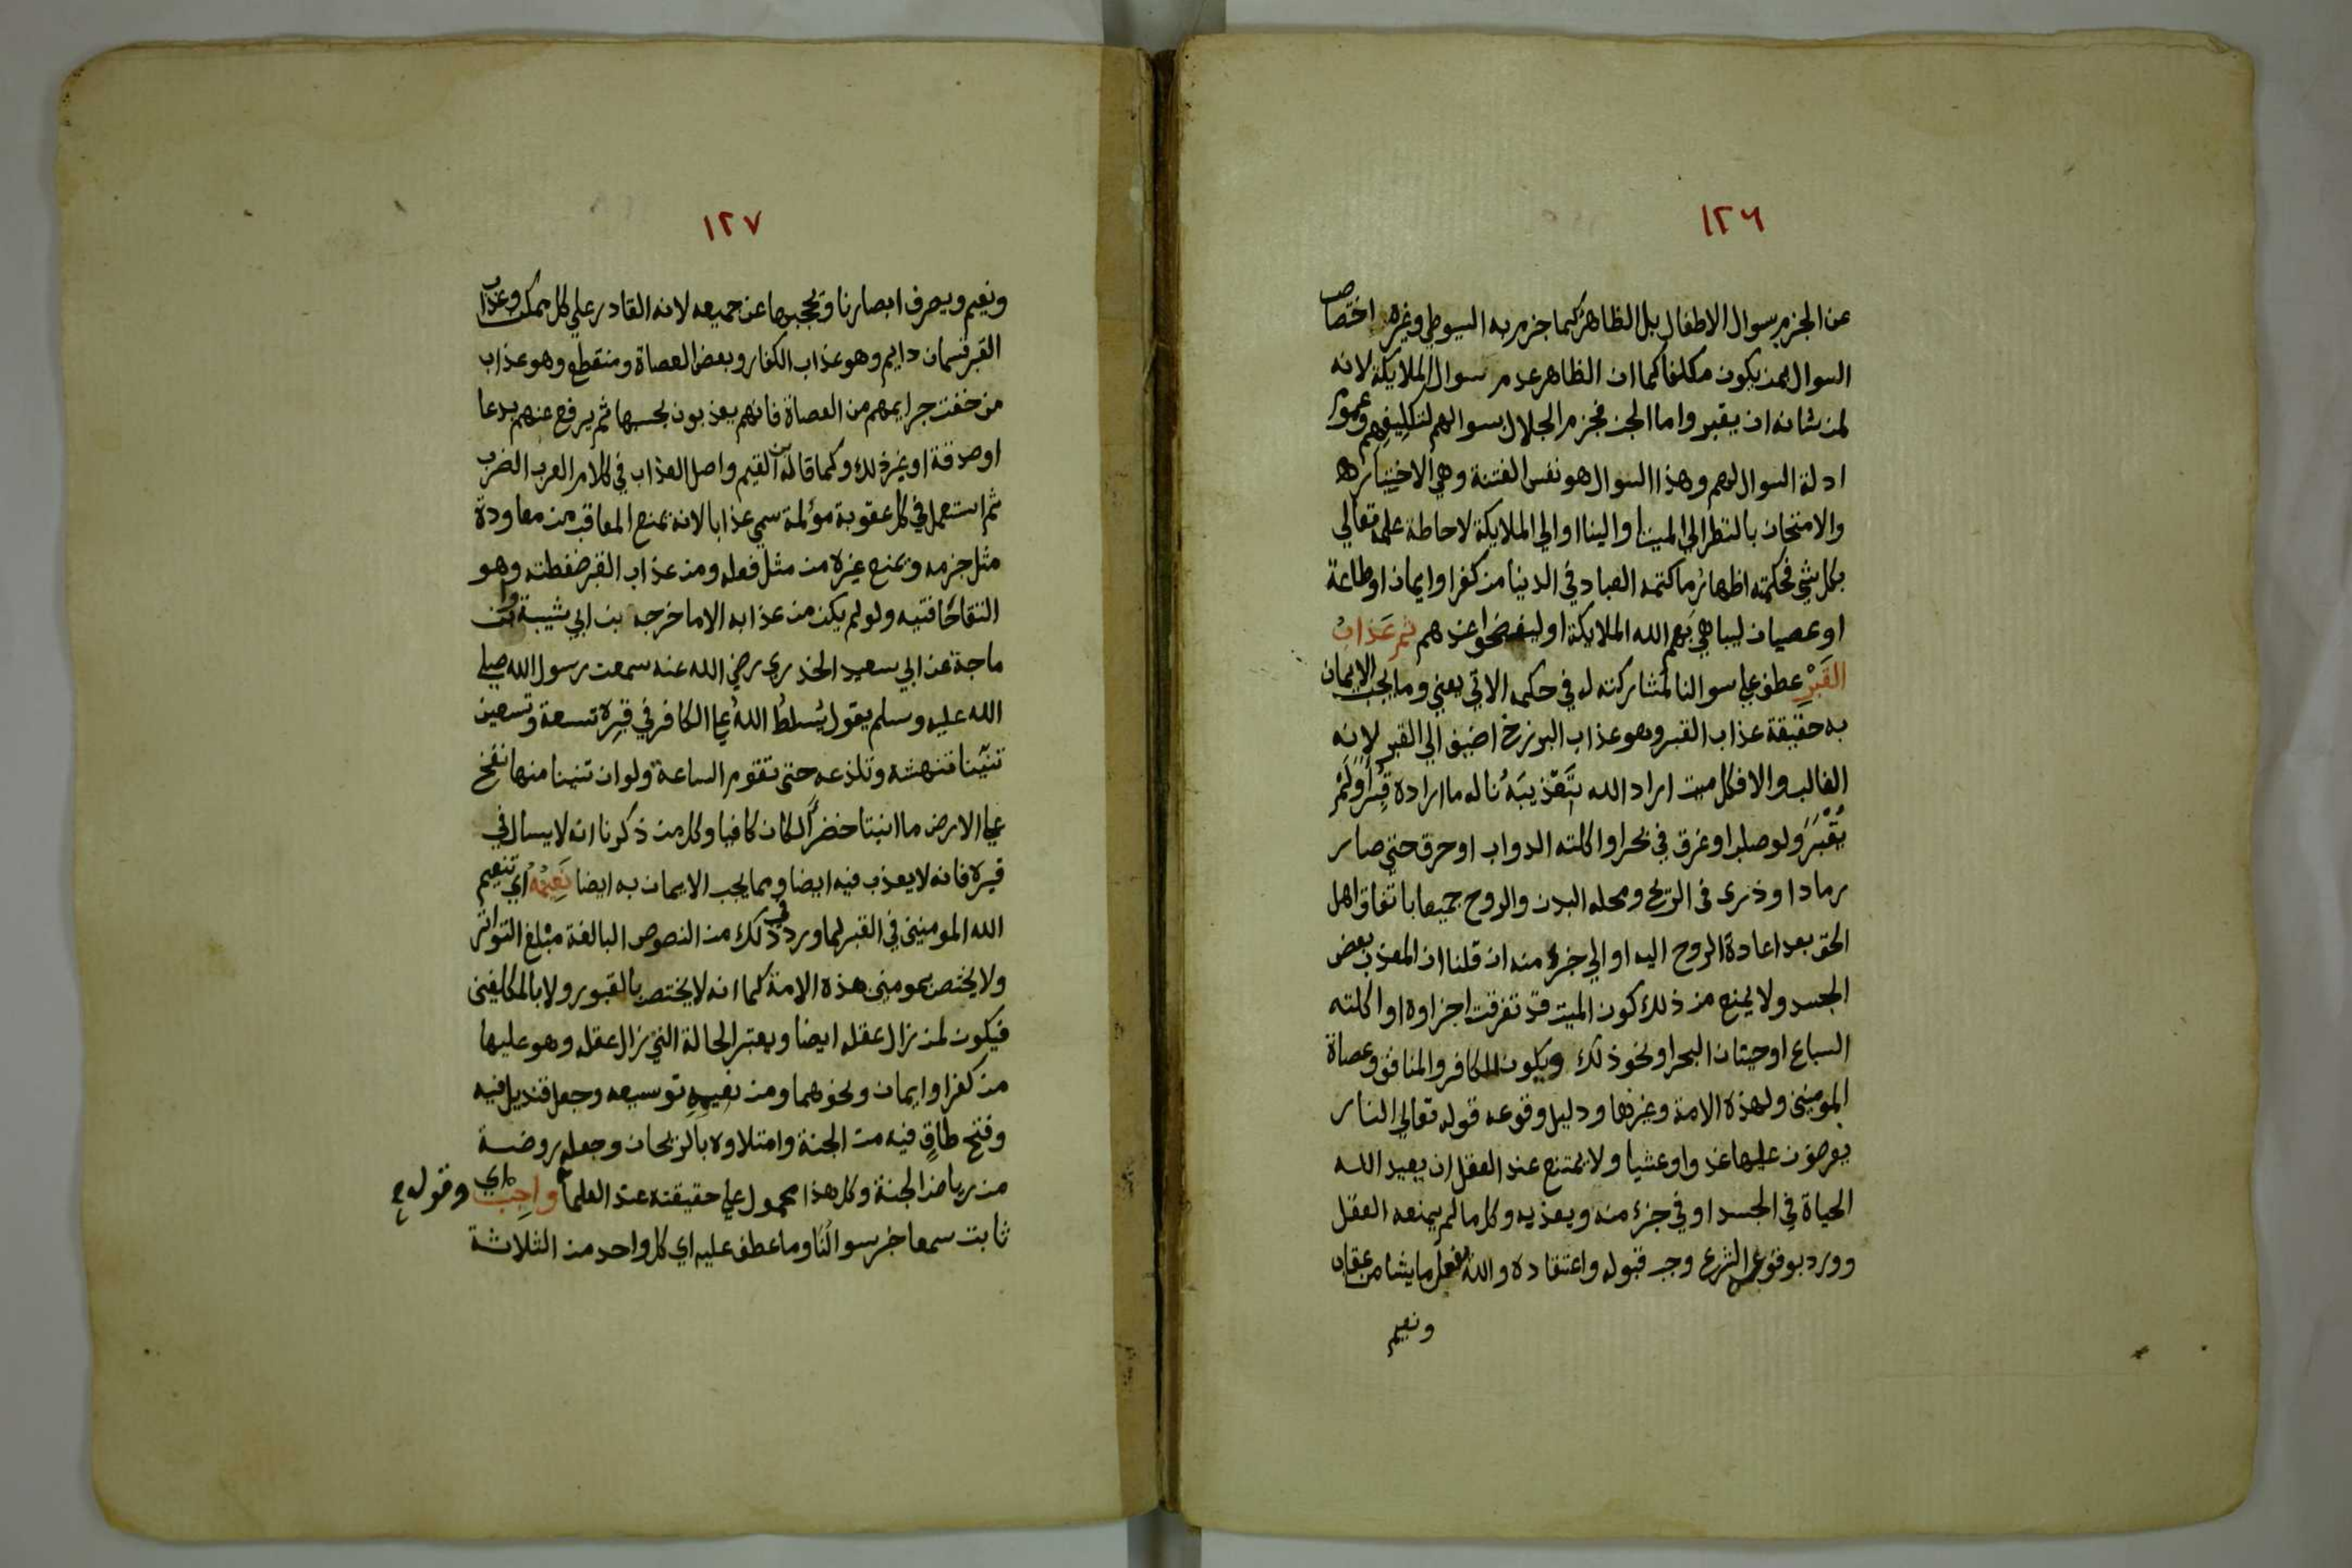 ١٢٦
عن الجزم بسوال الاطفال بل الظاهر كما جزم به السيوطي وغيره اختصاص
السوال بمن يكون مكلفا كما ان الظاهر عدم سوال الملايكة لانه
لمن شانه ان يقبر واما الجن فجزم الجلال بسوالهم لتكليفهم وعموم
ادلة السوال لهم وهذا السوال هو نفس الفتنة وهي الاختبار
والامتحان بالنظر الي الميت او الينا او الي الملايكة لاحاطة علمه تعالي
بكل شي فحكمته اظهار ما كتمه العباد في الدنيا من كفر او ايمان او طاعة
او عصيان ليباهي بهم الله الملايكة او ليفضحوا عندهم ثم عَذَابُ
القَبْرِ عطف علي سوالنا لمشاركته له في حكمه الاتي يعني ومما يجب الايمان
به حقيقة عذاب القبر وهو عذاب البرزخ اضيف الي القبر لانه
الغالب والا فكل ميت اراد الله تَعْذِيبَهُ ناله ما اراده قُبِرَ اَولَمْ
يُقْبَرَ ولو صلب او غرق في بحر او اكلته الدواب او حرق حتي صار
رمادا وذري في الريح ومحله البدن والروح جميعا باتفاق اهل
الحق بعد اعادة الروح اليه او الي جزء منه ان قلنا ان المعذب بعض
الجسد ولا يمنع من ذلك كون الميت قد تفرقت اجزاوه او اكلته
السباع او حيتان البحر او نحو ذلك ويكون للكافر والمنافق وعصاة
المومنين ولهذه الامة وغيرها ودليل وقوعه قوله تعالي النار
يعرضون عليها غدوا وعشيا ولا يمتنع عند العقل ان يعيد الله
الحياة في الجسد او في جزء منه ويعذبه وكل ما لم يمنعه العقل
وورد بوقوعه الشرع وجب قبوله واعتقاده والله يفعل ما يشا من عقاب
ونعيم
١٢٧
ونعيم ويصرف ابصارنا ويحجبها عن جميعه لانه القادر علي كل ممكن وعذاب
القبر قسمان دايم وهو عذاب الكفار وبعض العصاة ومنقطع وهو عذاب
من خفت جرايمهم من العصاة فانهم يعذبون بحسبها ثم يرفع عنهم بدعا
او صدقة او غير ذلك وكما قاله بن القيم واصل العذاب في كلام العرب الضرب
ثم استعمل في كل عقوبة مؤلمة سمي عذابا لانه يمنع المعاقب من معاودة
مثل جرمه ويمنع غيره من مثل فعله ومن عذاب القبر ضغطته وهو
التقا حافتيه ولو لم يكن من عذابه الا ما خرجه بن ابي شيبة وابن
ماجة عن ابي سعيد الخدري رضي الله عنه سمعت رسول الله صلي
الله عليه وسلم يقول يُسَلِطُ اللهُ علي الكافر في قبره تسعة وتسعين
تنينا تنهشه وتلدغه حتي تقوم الساعة ولو ان تنينا منها نفخ
علي الارض ما انبتت خضرًا لكان كافيا وكل من ذكرنا انه لا يسال في
قبره فانه لا يعذب فيه ايضا ومما يجب الايمان به ايضا نَعِيْمُهُ اي تنعيم
الله المومنين في القبر لما ورد في ذلك من النصوص البالغة مبلغ التواتر
ولا يختص بمومني هذه الامة كما انه لا يختص بالقبور ولا بالمكلفين
فيكون لمن زال عقله ايضا ويعتبر الحالة التي زال عقله وهو عليها
من كفر او ايمان ونحوهما ومن نعيمه توسيعه وجعل قنديل فيه
وفتح طاقٍ فيه من الجنة وامتلاوه بالريحان وجعله روضة
من رياض الجنة وكل هذا محمول علي حقيقته عند العلما وقوله واجب اي
ثابت سمعا خبر سوالنا وما عطف عليه اي كل واحد من الثلاثة